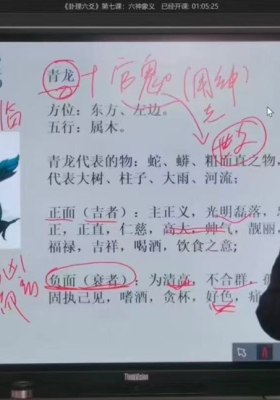 《卦理六爻》第七课：六神象义 已经开课：01:05:25
青龙 十 官鬼 (用神)
方位：东方、左边。
五行：属木。
世爻
临
青龙代表的物：蛇、蟒、粗而直之物，
代表大树、柱子、大雨、河流；
正面（吉者）：主正义，光明磊落，
正，正直，仁慈，高大，帅气，靓丽，
福禄，吉祥，喝酒，饮食之意；
负面（衰者）：为清高，不合群，
固执己见，嗜酒，贪杯，好色，
ThinkVision